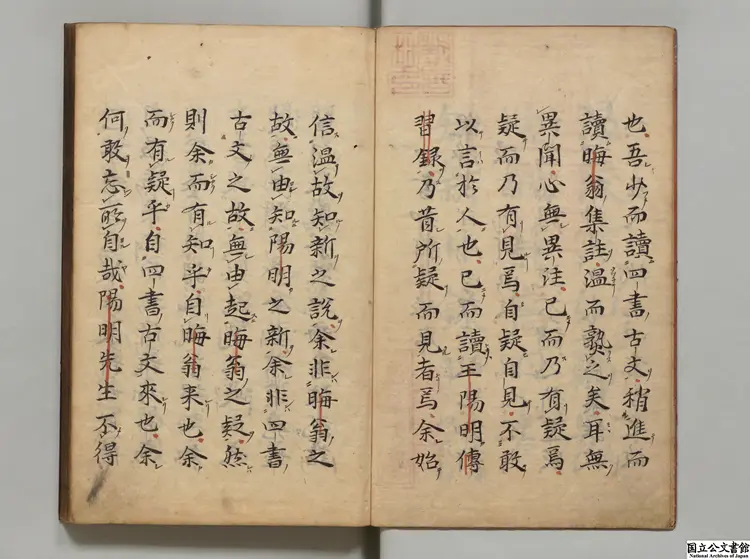 也吾少而讀四書古文稍進而
讀晦翁集註温而熟之矣耳無
異聞心無異注已而乃有疑焉
疑而乃有見焉自疑自見不敢
以言於人也已而讀王陽明傳
習録乃昔所疑而見者焉余始
信温故知新之説余非晦翁之
故無由知陽明之新余非四書
古文之故無由起晦翁之疑然
則余而有知乎自晦翁来也余
而有疑乎自四書古文來也余
何敢忘所自哉陽明先生不得
国立公文書館
National Archives of Japan